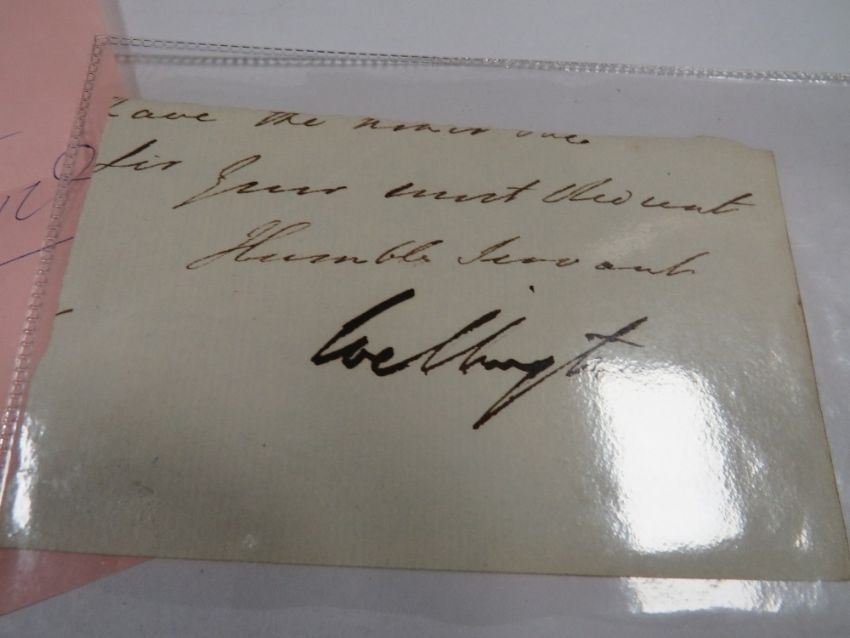 have the honor to be
Sir
Your most Obedient
Humble Servant
Wellington